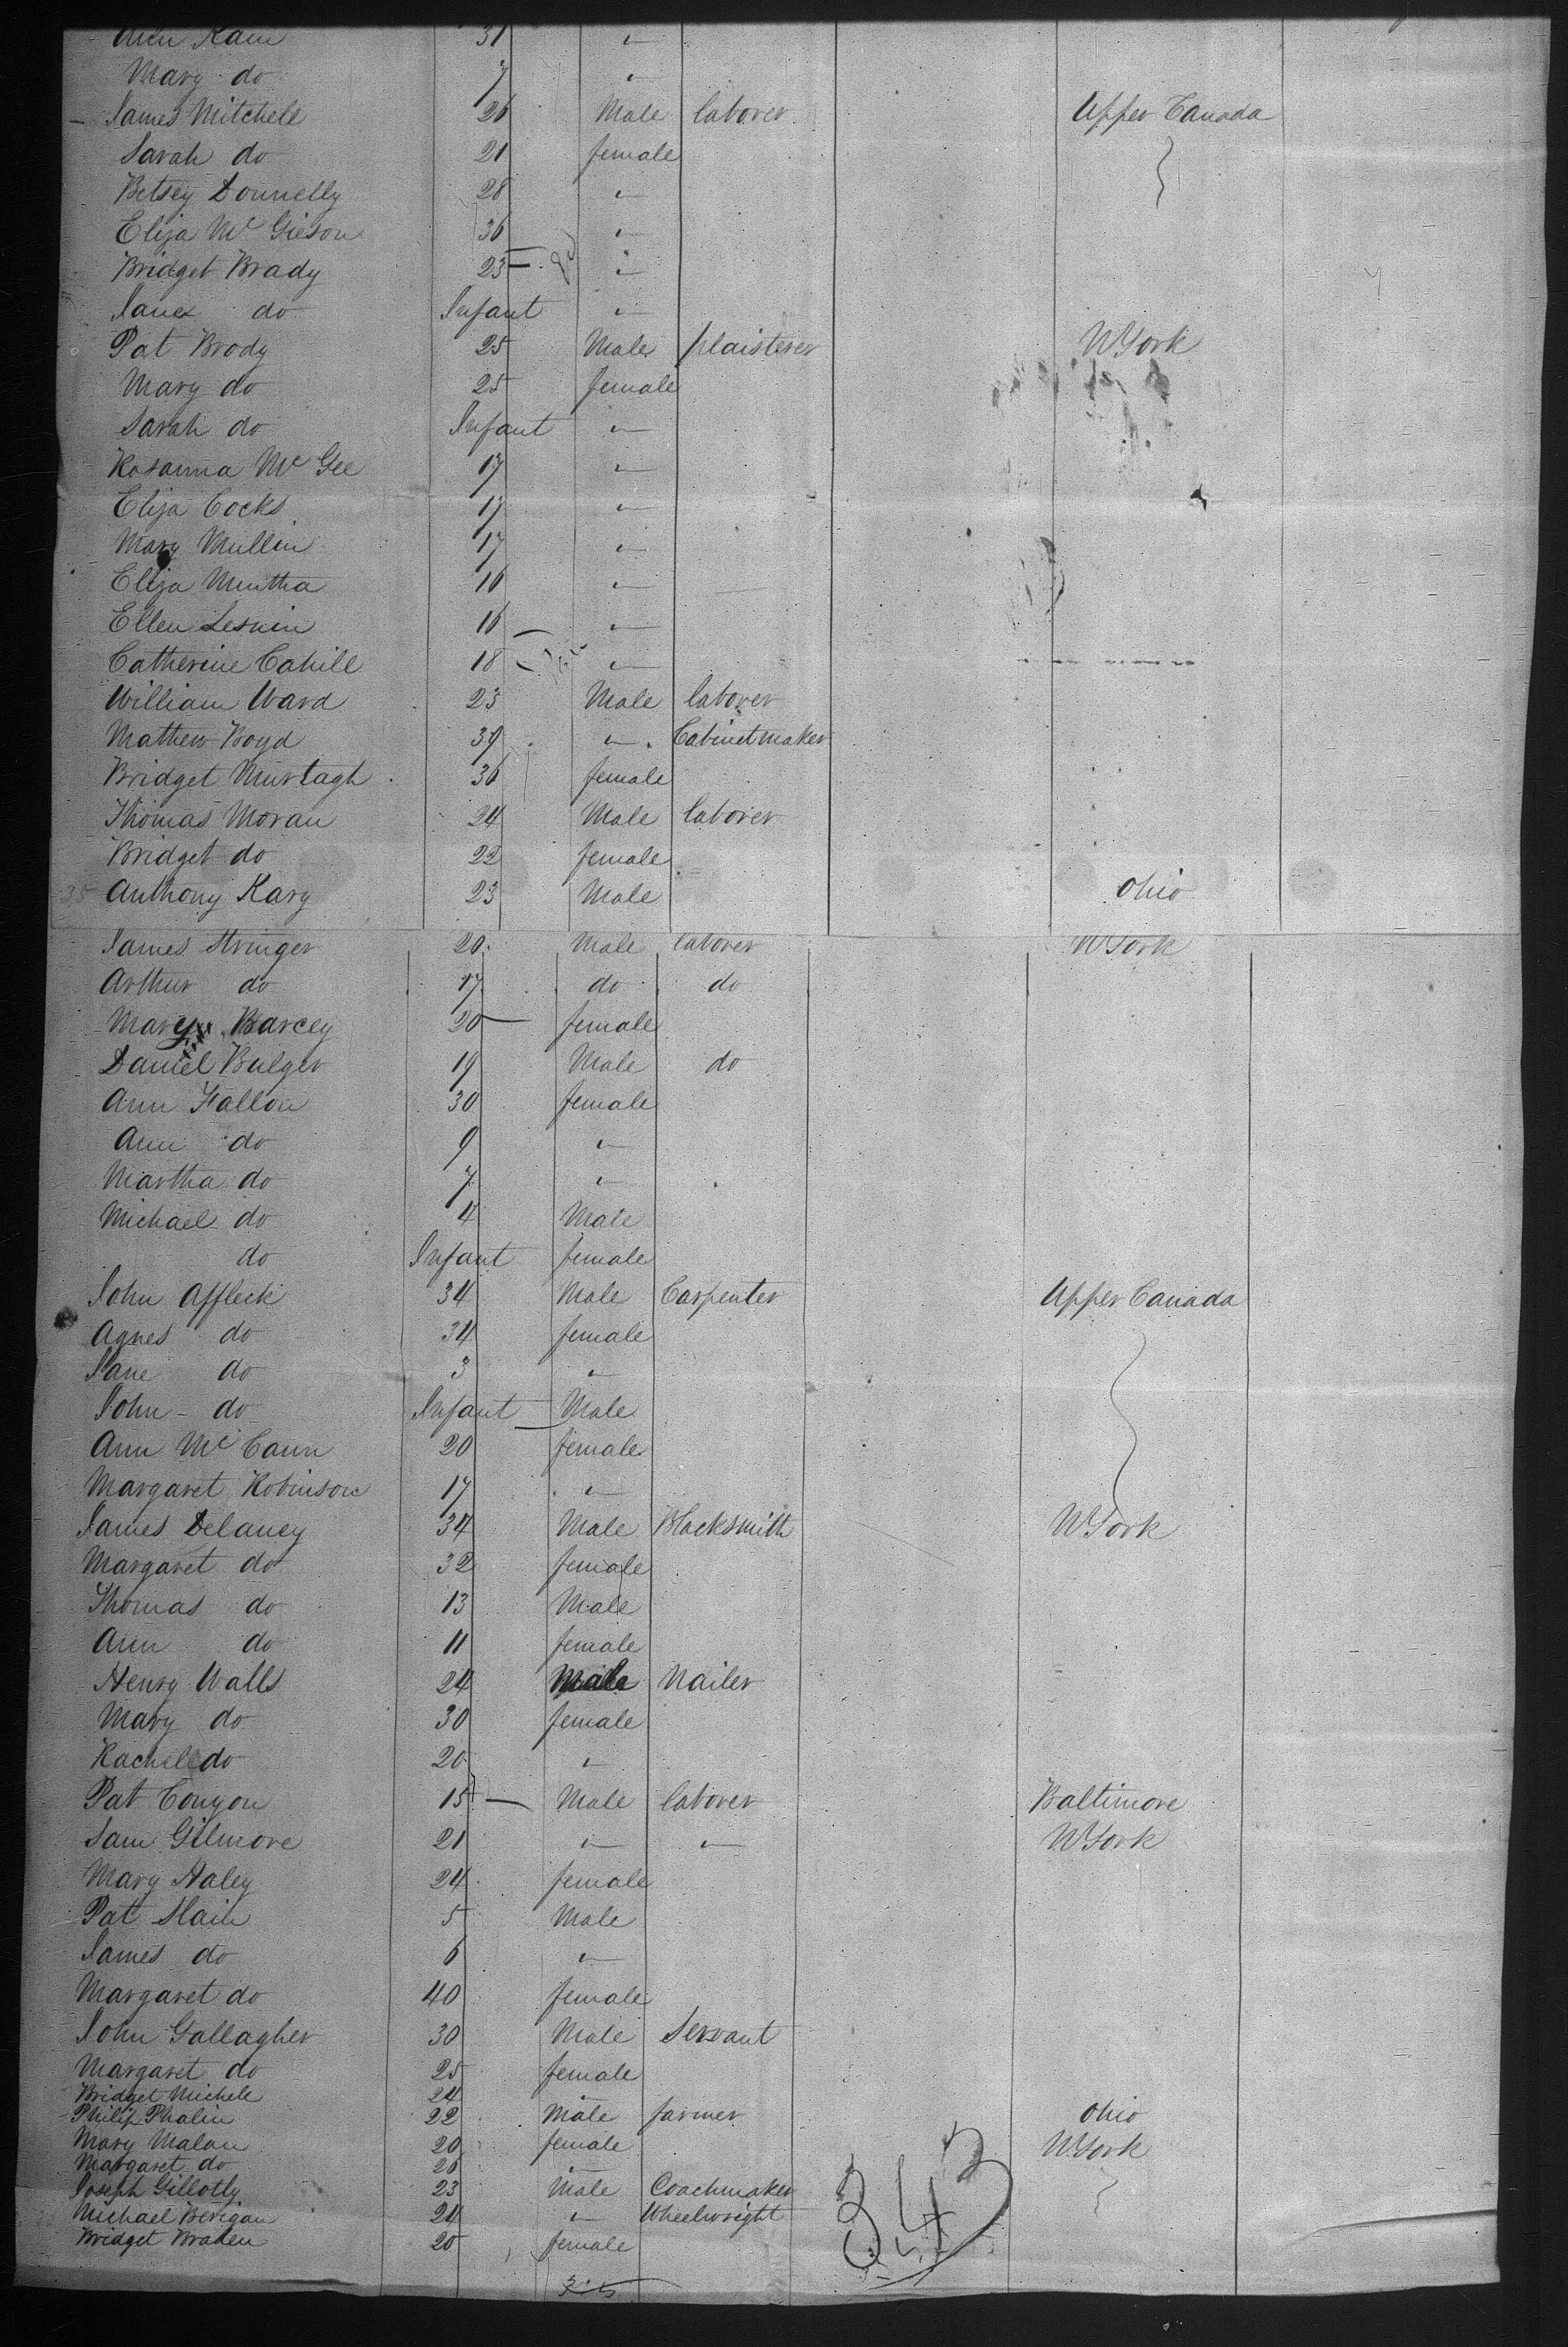 Ann Kain 31 "
Mary do 7 "
James Mitchell 26 Male laborer Upper Canada
Sarah do 21 female
Betsey Donnelly 28 "
Eliza Mc Gieson 36 "
Bridget Brady 23 "
James do Infant "
Pat Brody 25 Male plaisterer NYork
Mary do 25 female
Sarah do Infant "
Rosanna Mc Gee 17 "
Eliza Cocks 17 "
Mary Mullin 17 "
Eliza Murtha 16 "
Ellen 16 "
Catherine Cahill 18 "
William Ward 23 Male laborer
Mathew Boyd 39 " Cabinetmaker
Bridget Murtagh 36 female
Thomas Moran 24 Male laborer
Bridget do 22 female
35 Anthony Karg 23 Male Ohio
James Stringer 20 Male laborer NYork
Arthur do 17 do do
Mary Barcey 20 female
Daniel Bulger 19 Male do
Ann Fallon 30 female
Ann do 9 "
Martha do 7 "
Michael do 4 Male
do Infant female
John Affleck 34 Male Carpenter Upper Canada
Agnes do 34 female
Jane do 3 "
John do Infant Male
Ann Mc Cann 20 female
Margaret Robinson 17 "
James Delaney 34 Male Blacksmith NYork
Margaret do 32 female
Thomas do 13 Male
Ann do 11 female
Henry Walls 24 Male Nailer
Mary do 30 female
Rachel do 20 "
Pat Conyon 15 Male laborer Baltimore
Sam Gilmore 21 " " NYork
Mary Haley 24 female
Pat Slain 5 Male
James do 6 "
Margaret do 40 female
John Gallagher 30 Male Servant
Margaret do 25 female
Bridget Michele 24 "
Philip Phalin 22 Male farmer Ohio
Mary Malon 20 female NYork
Margaret do 26 "
Joseph Gillotly 23 Male Coachmaker
Michael Berigan 24 " Wheelwright
Bridget Braden 20 female
343